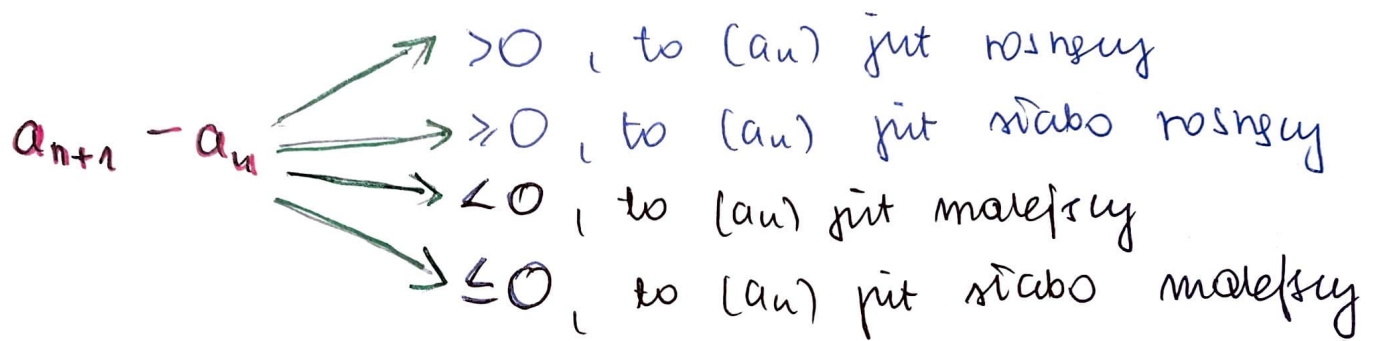 aₙ₊₁ - aₙ
>0, to (aₙ) jest rosnący
≥0, to (aₙ) jest słabo rosnący
<0, to (aₙ) jest malejący
≤0, to (aₙ) jest słabo malejący